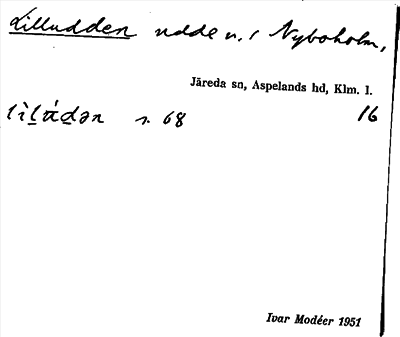 Lilludden udde n. i Nyboholm,
Järeda sn, Aspelands hd, Klm. l.
16
s. 68
Ivar Modéer 1951